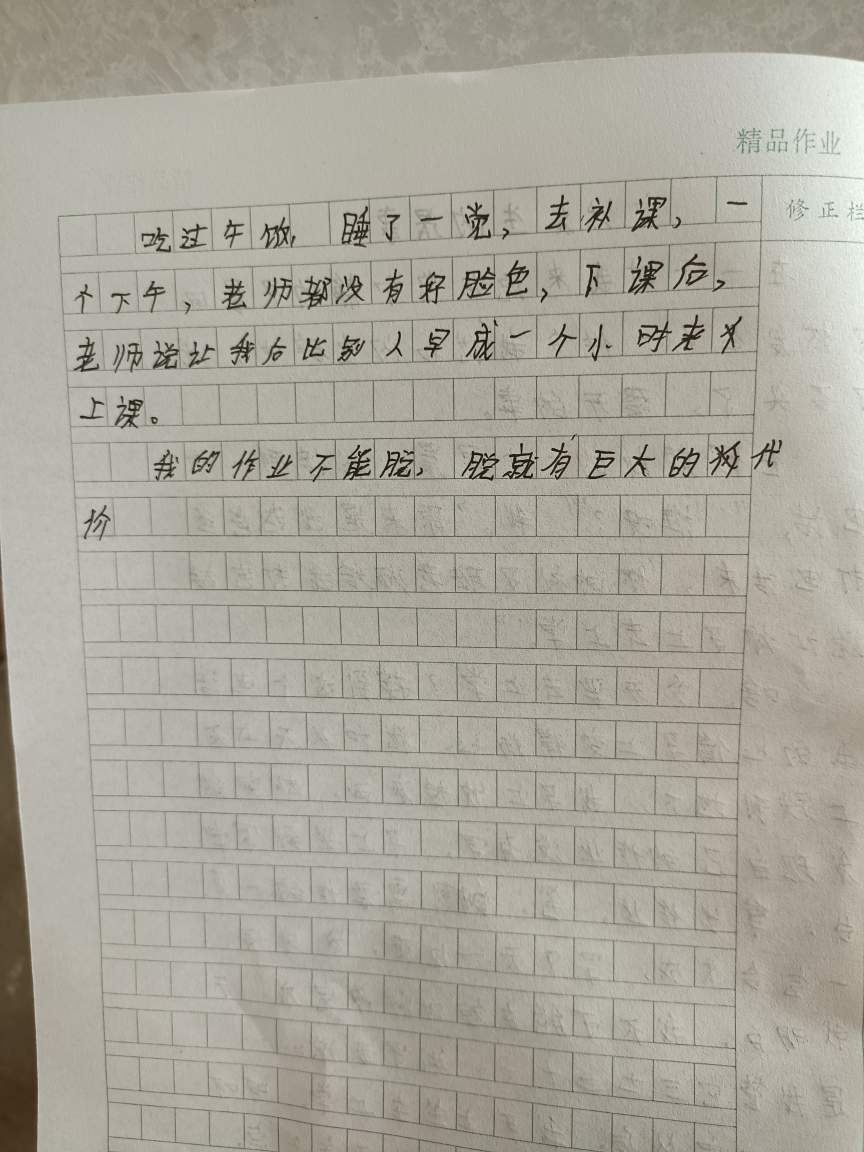 精品作业
修正栏
吃过午饭,睡了一觉,去补课,一
个下午,老师都没有好脸色,下课后,
老师说让我后比别人早成一个小时来
上课。
我的作业不能脱,脱就有巨大的代
价